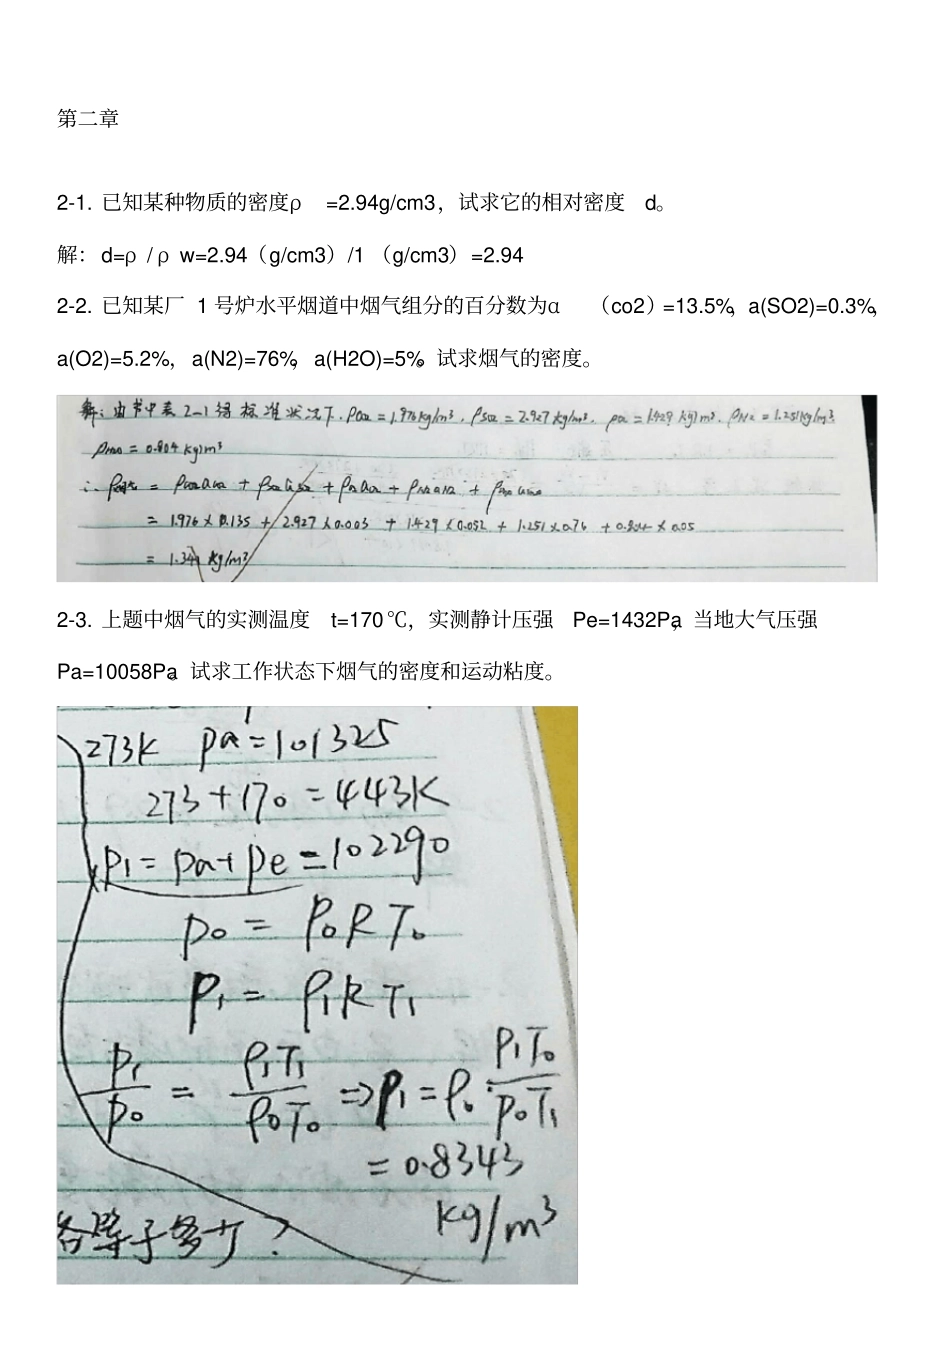 第二章
2-1. 已知某种物质的密度ρ =2.94g/cm3，试求它的相对密度 d。
解：d=ρ / ρ w=2.94（g/cm3）/1 （g/cm3）=2.94
2-2. 已知某厂 1 号炉水平烟道中烟气组分的百分数为α （co2）=13.5%，a(SO2)=0.3%，
a(O2)=5.2%，a(N2)=76%，a(H2O)=5%。试求烟气的密度。
解：由书中表2-1得标准状况下，ρco2=1.976kg/m³，ρso2=2.927kg/m³，ρo2=1.429kg/m³，ρN2=1.251kg/m³
ρH2O=0.804kg/m³
∴ = ρco2αco2 + ρso2αso2 + ρo2αo2 + ρN2αN2 + ρH2OαH2O
= 1.976×0.135 + 2.927×0.003 + 1.429×0.052 + 1.251×0.76 + 0.804×0.05
= kg/m³
2-3. 上题中烟气的实测温度 t=170℃，实测静计压强 Pe=1432Pa，当地大气压强
Pa=10058Pa。试求工作状态下烟气的密度和运动粘度。
273K pa=101325
273+170=443K
p1=pa+pe=102290
p0=ρ0RT0
p1=ρ1RT1
p1/p0 = ρ1T1/ρ0T0 ⇒ ρ1=ρ0·p1T0/p0T1
=0.8343
kg/m³
各等于多少？